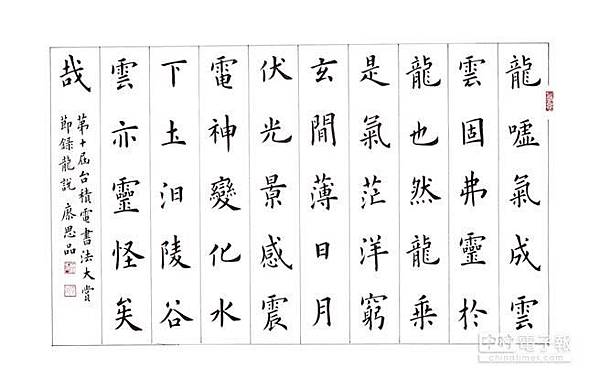 龍噓氣成雲
雲固弗靈於
龍也然龍乘
是氣茫洋窮
玄間薄日月
伏光景感震
電神變化水
下土汩陵谷
雲亦靈怪矣
哉
第十屆台積電書法大賞
節錄龍說 廖思品
中時電子報